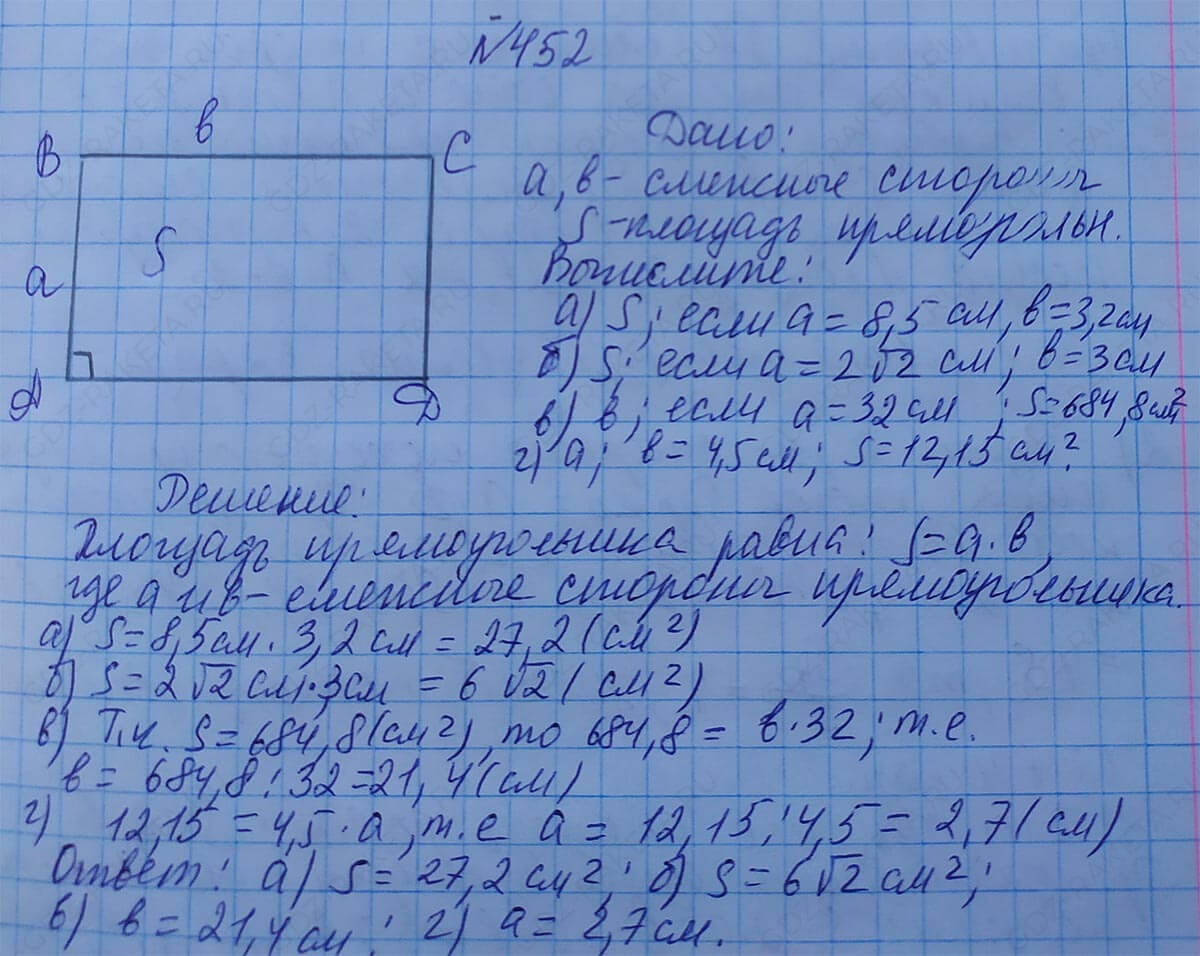 №452
B
в
C
S
a
A
D
Дано:
a, в - смежные стороны
S - площадь прямоугольн.
Вычислите:
а) S; если a = 8,5 см, в = 3,2 см
б) S; если a = 2√2 см; в = 3 см
в) в; если a = 32 см ; S = 684,8 см²
г) a; в = 4,5 см; S = 12,15 см².
Решение:
Площадь прямоугольника равна: S = a · в,
где a и в - смежные стороны прямоугольника.
а) S = 8,5 см · 3,2 см = 27,2 (см²)
б) S = 2√2 см · 3 см = 6√2 (см²)
в) Т.к. S = 684,8 (см²), то 684,8 = в · 32; т.е.
в = 684,8 : 32 = 21,4 (см)
г) 12,15 = 4,5 · a, т.е a = 12,15 : 4,5 = 2,7 (см)
Ответ: а) S = 27,2 см²; б) S = 6√2 см²;
в) в = 21,4 см ; г) a = 2,7 см.